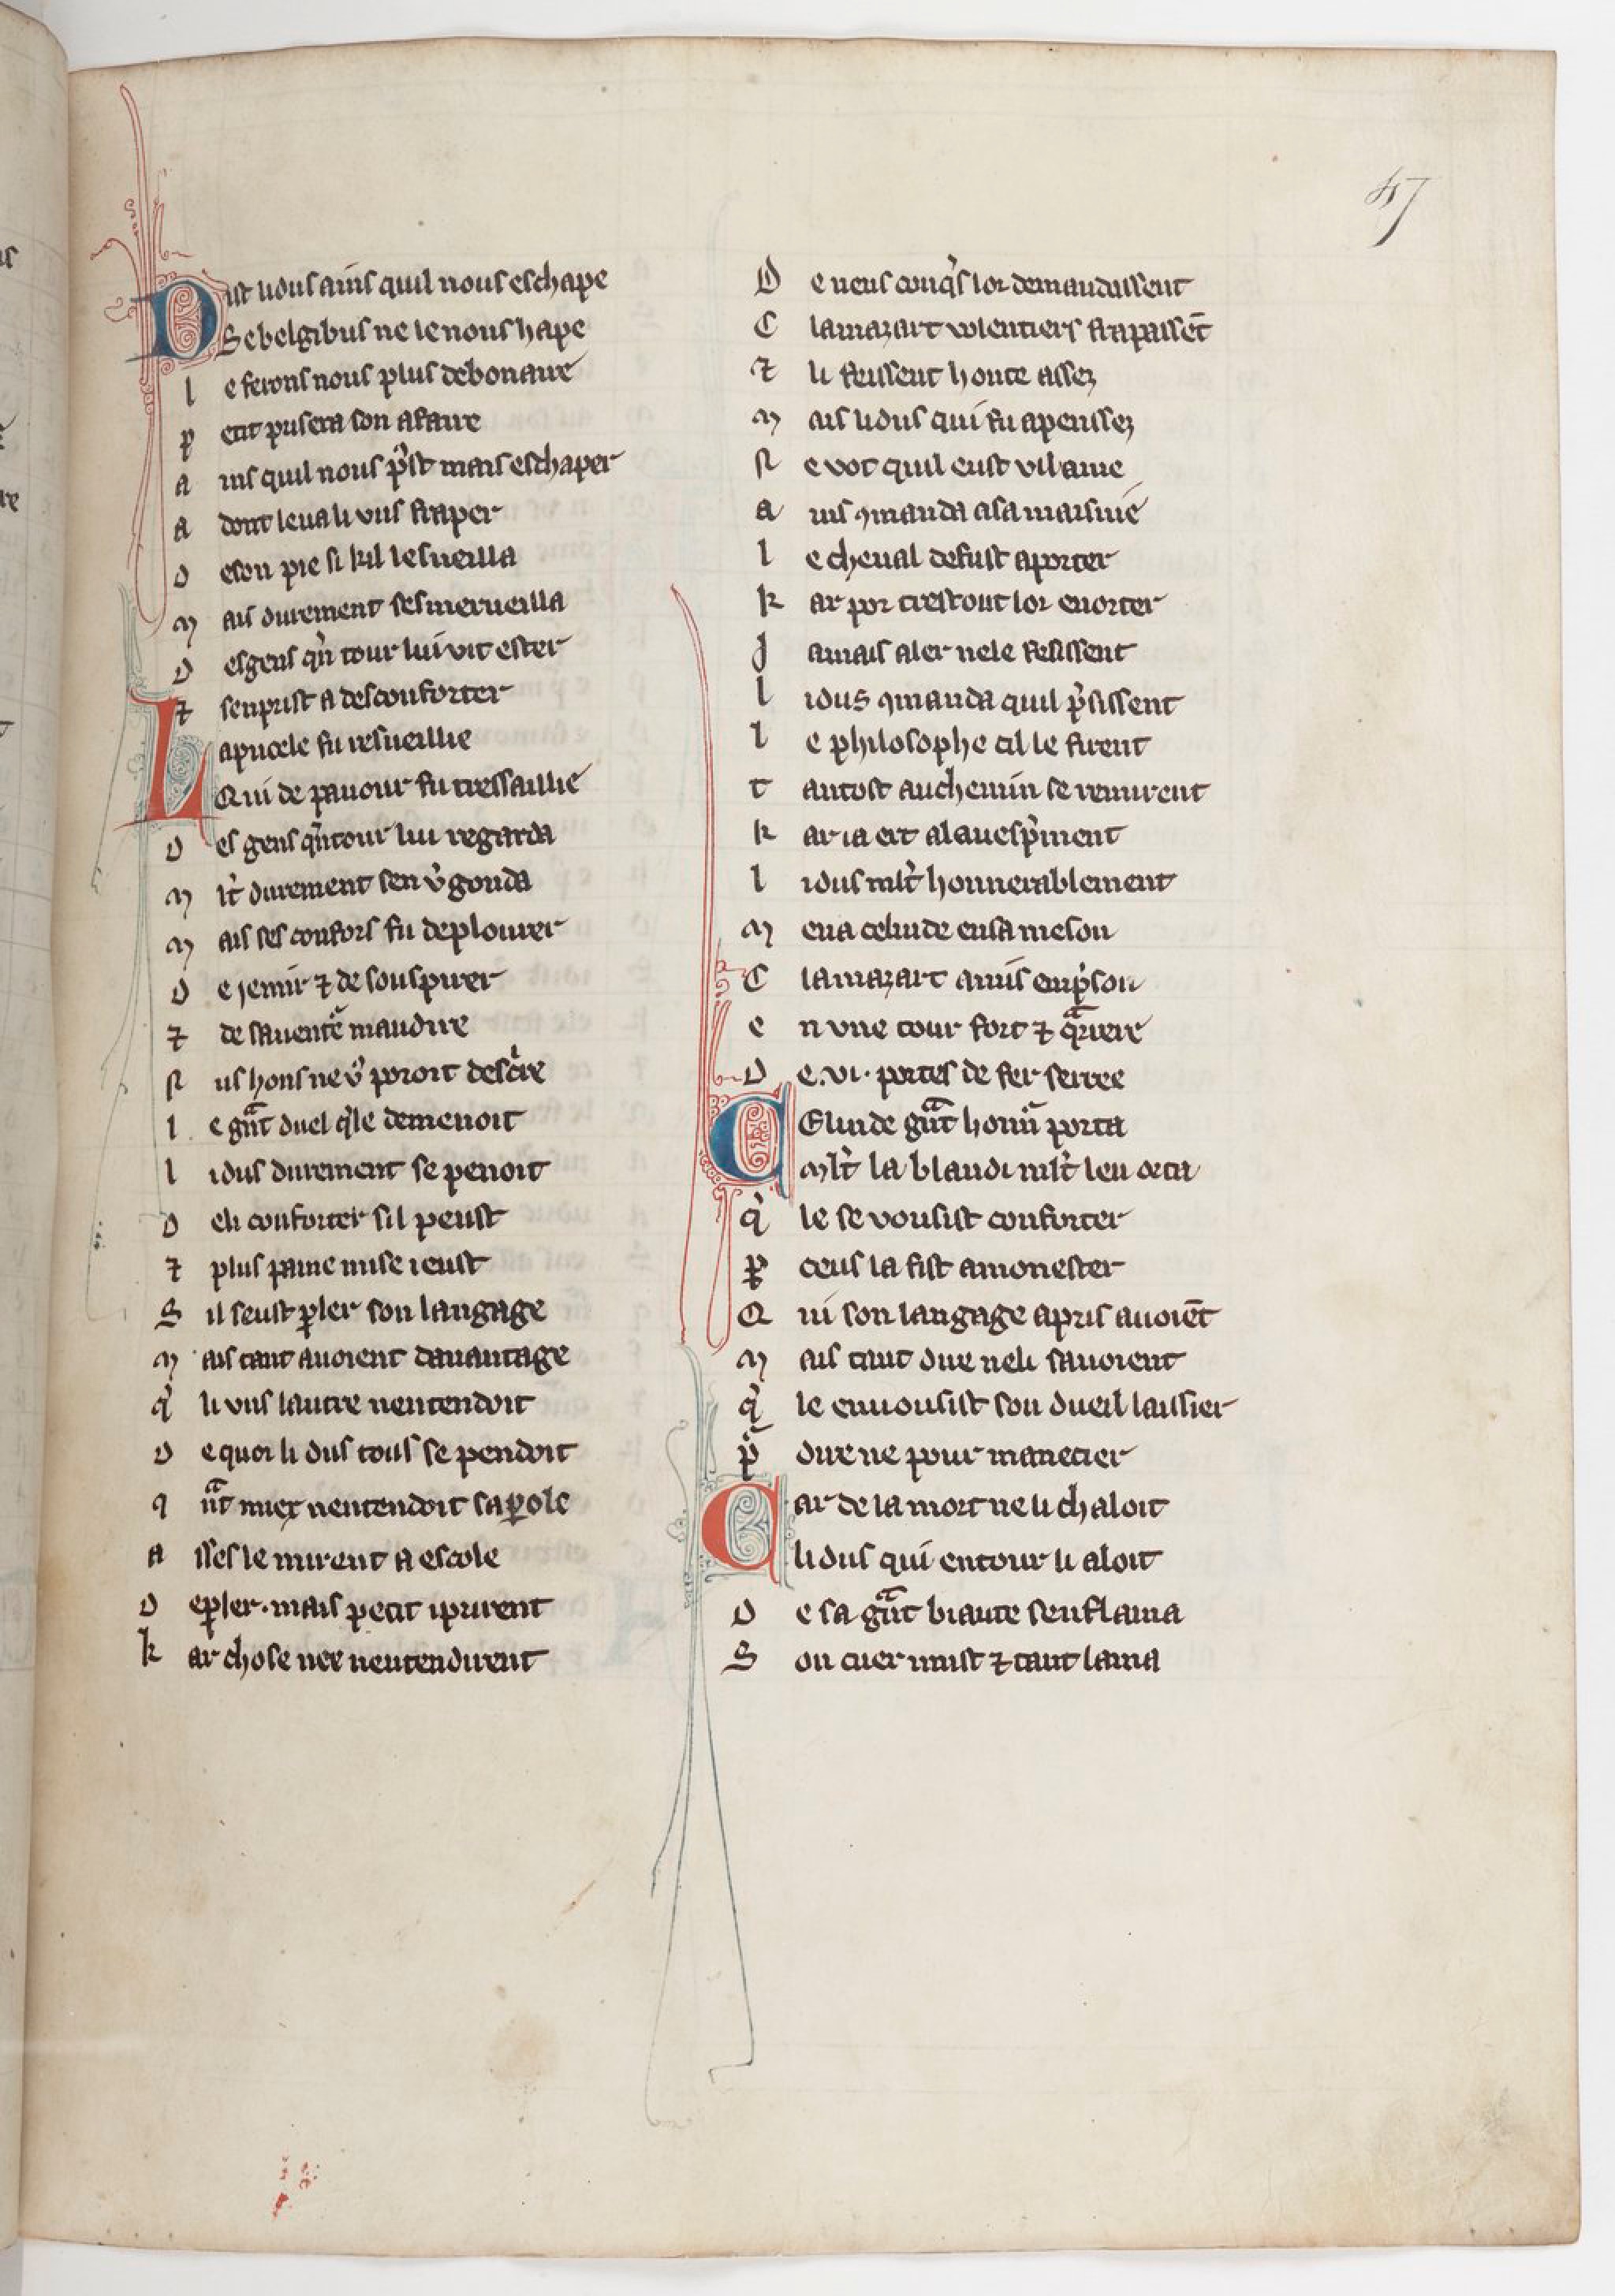 47
Dist lidus ains quil nous eschape
Se belgibus ne le nous hape
l e ferons nous plus debonaire
p etit prisera son afaire
a ins quil nous p̾st mais eschaper
a dont leua li vns fraper
d eson pie si kil lesueilla
m ais durement sesmerueilla
d esgens qͥn tour lui vit ester
⁊ senprist a desconforter
La pucele fu resueillie
Qui de paour fu tressaillie
d es gens qͥntour lui regarda
m lt̾ durement sen v̾gonda
m ais ses confors fu deplourer
d e jemir ⁊ de souspirer
⁊ de sauentᵉ̃ maudire
n us hons ne vͦ poroit descͥre
l e gͣnt duel qͥle demenoit
l idus durement se penoit
d eli conforter sil peust
⁊ plus paine mise ieust
S il seust ꝑler son langage
m ais tant auoient dauantage
qͥ li vns lautre nentendoit
d e quoi li dus tous se pendoit
q ͣnt miex nentendoit sa ꝑole
a sses le mirent a escole
d e ꝑler . mais petit iprirent
k ar chose nee nentendirent
D e neus conqͥs lor demandassent
C lamazart volentiers frapassēt
⁊ li feissent honte assez
m ais lidus qui fu apenssez
n e vot quil eust vilanie
a ins ꝯmanda asa maisnie
l e cheual defust aporter
k ar por trestout lor enorter
J amais aler nele fesissent
l idus ꝯmanda quil p̾sissent
l e philosophe cil le firent
t antost auchemin se remirent
k ar ia ert alauesp̾ment
l idus mlt̾ honnerablement
m ena celinde ensa meson
C lamazart a mis enpͥson
e n vne tour fort ⁊ qͣrree
D e .vi. portes de fer serree
CElinde gͣnt honnᵉ̃ porta
mlt̾ la blandi mlt̾ len orta
qͥ le se vousist conforter
ꝑ ceus la fist amonester
Q ui son langage apris auoiēt
m ais tant dire neli sauoient
qͥ le enuousist son dueil laissier
pͬ dire ne pour manecier
Car de la mort ne li chaloit
li dus qui entour li aloit
D e sa gͣnt biaute senflama
S on cuer mist ⁊ tant lama